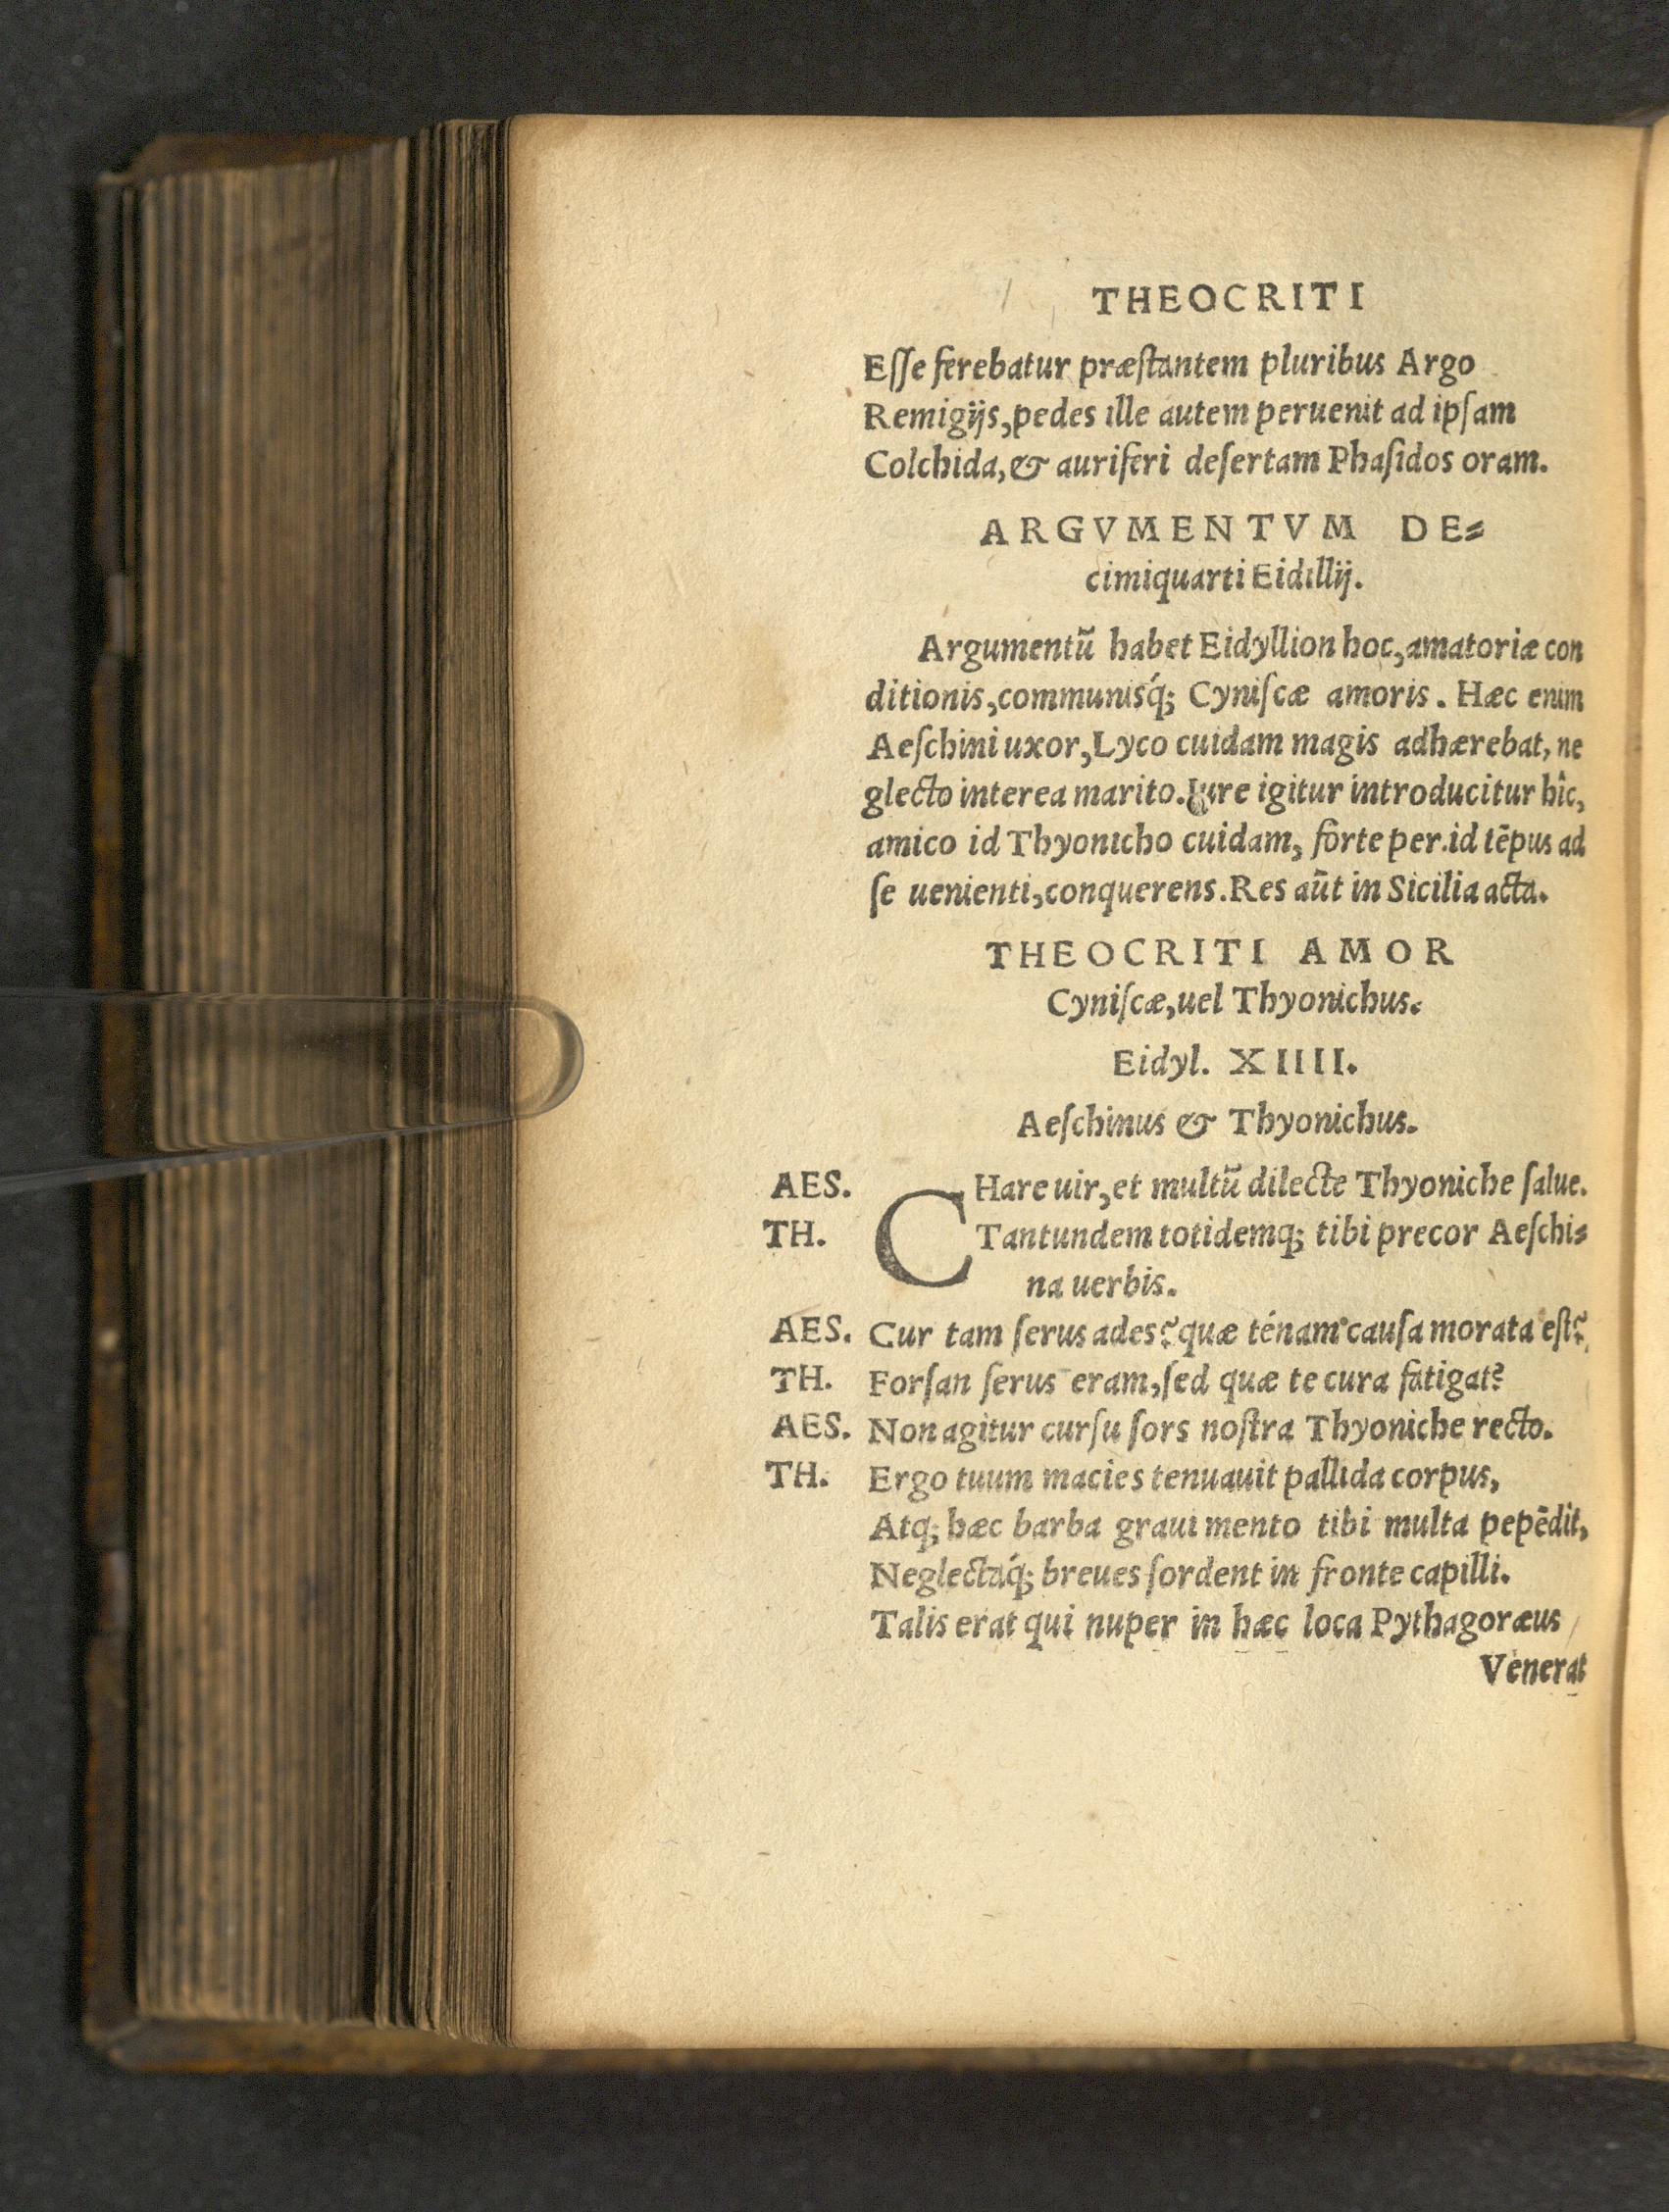 THEOCRITI
Eſſe ferebatur præſtantem pluribus Argo
Remigijs, pedes ille autem peruenit ad ipſam
Colchida, & auriferi deſertam Phaſidos oram.
ARGVMENTVM DE⸗
cimiquarti Eidillij.
Argumentũ habet Eidyllion hoc, amatoriæ con
ditionis, communisq́; Cyniſcæ amoris. Hæc enim
Aeſchini uxor, Lyco cuidam magis adhærebat, ne
glecto interea marito. Iure igitur introducitur hîc,
amico id Thyonicho cuidam, forte per id tẽpus ad
ſe uenienti, conquerens. Res aũt in Sicilia acta.
THEOCRITI AMOR
Cyniſcæ, uel Thyonichus.
Eidyl. XIIII.
Aeſchinus & Thyonichus.
AES. CHare uir, et multũ dilecte Thyoniche ſalue.
TH. Tantundem totidemq; tibi precor Aeſchi⸗
na uerbis.
AES. Cur tam ſerus ades? quæ ténam cauſa morata eſt?
TH. Forſan ſerus eram, ſed quæ te cura fatigat?
AES. Non agitur curſu ſors noſtra Thyoniche recto.
TH. Ergo tuum macies tenuauit pallida corpus,
Atq; hæc barba graui mento tibi multa pepẽdit,
Neglectaq́; breues ſordent in fronte capilli.
Talis erat qui nuper in hæc loca Pythagoræus
Venerat